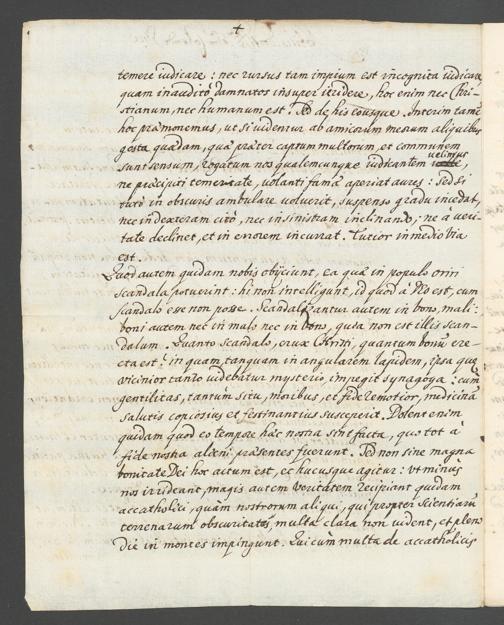 +
temere iudicare: nec rursus tam impium est incognita iudicare
quam inauditò damnatos insuper irridere, hoc enim nec Chri-
stianum, nec humanum est. Sed de his eousque. Interim tamē
hoc præmonemus, ut si uidentur ab amicorum meorum aliquibus
gesta quædam, quæ præter captum multorum, et communem
sunt sensum, rogatum nos qualemcunque iudicantem uelimus,
ne præcipiti temeritate, uolanti famæ aperiat aures: sed si
tutò in obscuris ambulare uoluerit, suspenso gradu incedat,
nec in dexteram citò, nec in sinistram inclinando, ne à ueri-
tate declinet, et in errorem incurrat. Tutior in medio via
est.
Quod autem quidam nobis obijciunt, ea quæ in populo oriri
scandala potuerint: hi non intelligunt, id quod à Deo est, cum
scandalo esse non posse. Scandalizantur autem in bono, mali:
boni autem nec in malo nec in bono, quia non est illis scan-
dalum. Quanto scandalo, crux Christi, quantum bonū ere-
cta est? in quam, tanquam in angularem lapidem, ipsa quę
uicinior tanto uidebatur mysterio, impegit synagoga: cum
gentilitas, tantum situ, moribus, et fide remotior, medicinā
salutis copiosius et festinantius susceperit. Dolent enim
quidam quod eo tempore hæc nostra sint facta, quo tot à
fide nostra alieni præsentes fuerunt. Sed non sine magna
bonitate Dei hoc actum est, et hucusque agitur: ut minus
nos irrideant, magis autem veritatem recipiant quidam
accatholici, quam nostrorum aliqui, qui propter scientiarū
terrenarum obscuritates, multa clara non uident, et pleno
die in montes impingunt. Qui cùm multa de accatholicis